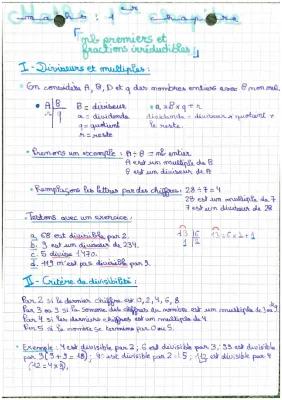 Maths : 1er chapitre
"nb premiers et
fractions irréductibles"
I - Diviseurs et multiples :
• On considère A, B, D et q des nombres entiers avec B non nul.
• A | B B = diviseur • a = B x q + r
r q a = dividende dividende = diviseur x quotient +
q = quotient le reste.
r = reste
• Prenons un exemple : A ÷ B = nb entier
A est un multiple de B
B est un diviseur de A
• Remplaçons les lettres par des chiffres : 28 ÷ 7 = 4
28 est un multiple de 7
7 est un diviseur de 28
• Testons avec un exercice :
a. 68 est divisible par 2. 13 = 6 x 2 + 1
b. 9 est un diviseur de 234.
c. 5 divise 1470.
d. 119 n'est pas divisible par 3.
II - Critère de divisibilité :
Par 2 si le dernier chiffre est 0, 2, 4, 6, 8
Par 3 ou 9 si la somme des chiffres du nombre est un multiple de 3 ou 9.
Par 4 si les derniers chiffres est un multiple de 4
Par 5 si le nombre se termine par 0 ou 5.
• Exemple : 4 est divisible par 2 ; 6 est divisible par 3 ; 99 est divisible
par 9 (9 + 9 = 18) ; est divisible par 5 ; 112 est divisible par 4
(12 = 4 x 3),